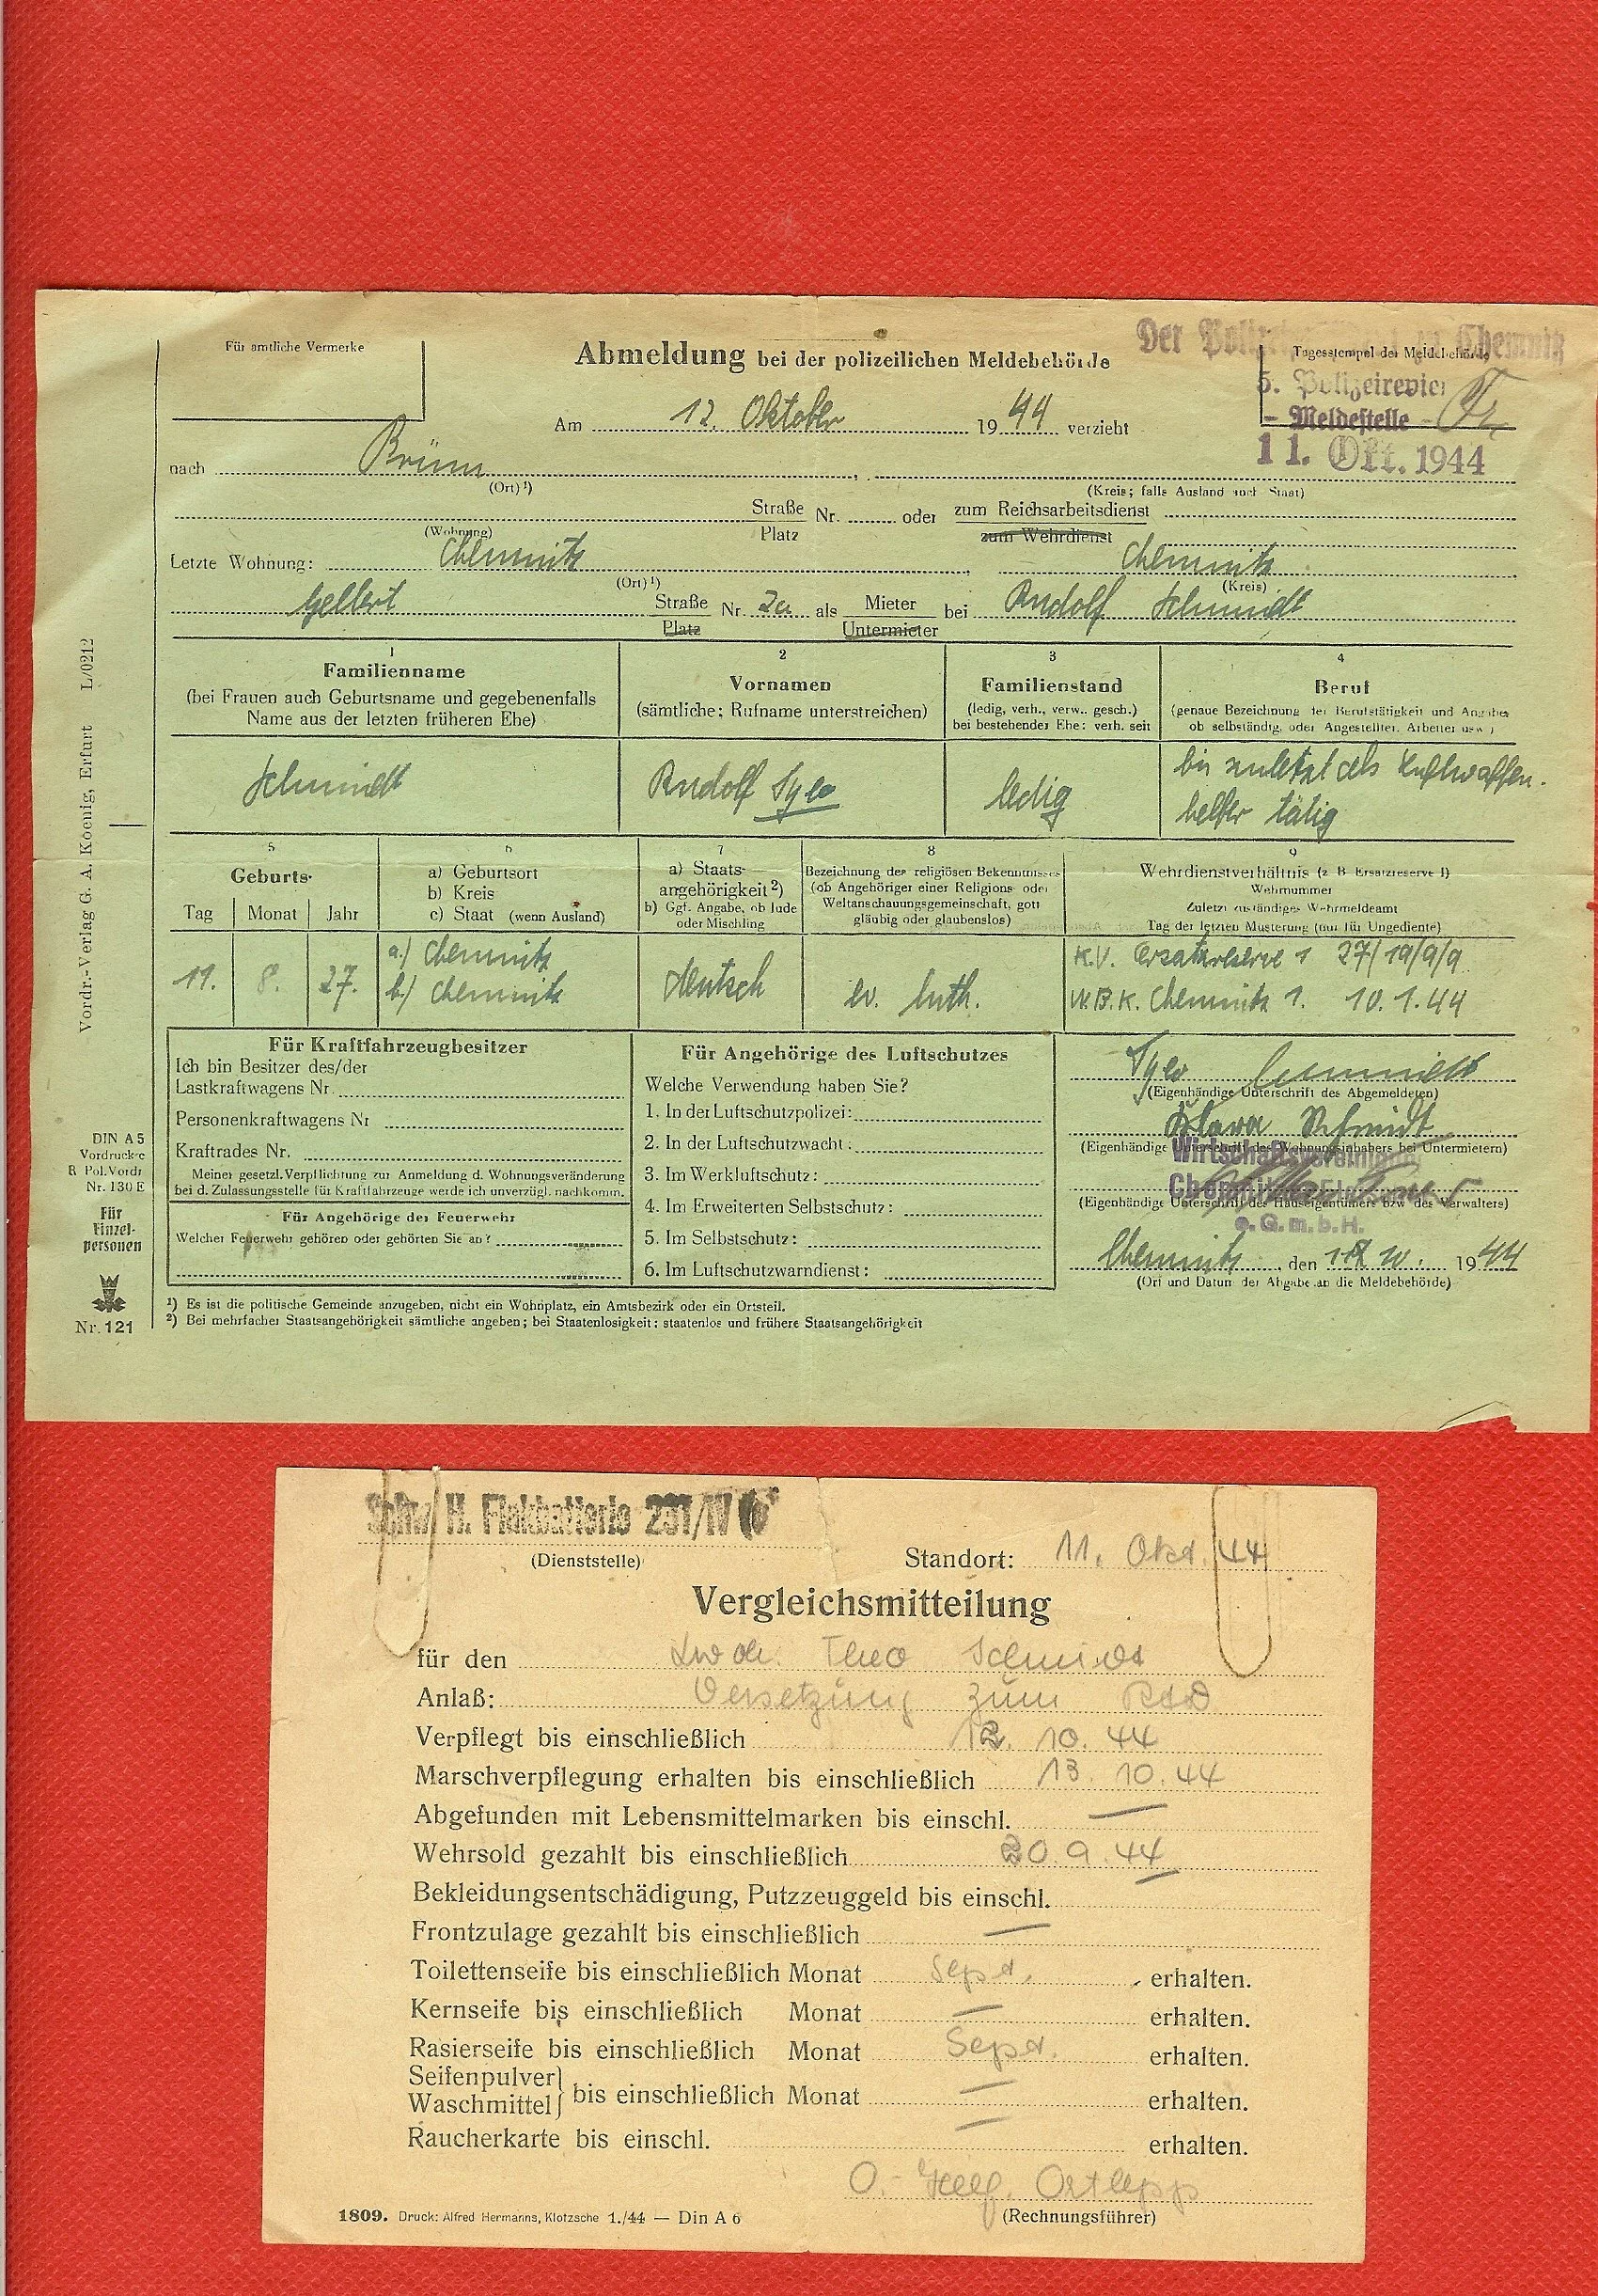 Für amtliche Vermerke
Abmeldung bei der polizeilichen Meldebehörde
Der Chemnitz
Tagesstempel der Meldebehörde
5. Polizeirevier
- Meldestelle -
11. Okt. 1944
Am 12. Oktober 1944 verzieht
nach Brünn
(Ort)¹) (Kreis; falls Ausland auch Staat)
Straße Nr. oder zum Reichsarbeitsdienst
Platz zum Wehrdienst
(Wohnung)
Letzte Wohnung: Chemnitz Chemnitz
(Ort)¹) (Kreis)
Gellert Straße Nr. 2a als Mieter bei Rudolf Schmidt
Platz Untermieter
1 2 3 4
Familienname
(bei Frauen auch Geburtsname und gegebenenfalls
Name aus der letzten früheren Ehe)
Vornamen
(sämtliche; Rufname unterstreichen)
Familienstand
(ledig, verh., verw., gesch.)
bei bestehender Ehe: verh. seit
Beruf
(genaue Bezeichnung der Berufstätigkeit und Angabe,
ob selbständig, oder Angestellter, Arbeiter usw.)
Schmidt
Rudolf
ledig
bis zuletzt als Luftwaffen-
helfer tätig
5 6 7 8 9
Geburts-
Tag Monat Jahr
a) Geburtsort
b) Kreis
c) Staat (wenn Ausland)
a) Staats-
angehörigkeit²)
b) Ggf. Angabe, ob Jude
oder Mischling
Bezeichnung des religiösen Bekenntnisses
(ob Angehöriger einer Religions- oder
Weltanschauungsgemeinschaft, gott
gläubig oder glaubenslos)
Wehrdienstverhältnis (z. B. Ersatzreserve I)
Wehrnummer
Zuletzt zuständiges Wehrmeldeamt
Tag der letzten Musterung (nur für Ungediente)
11. 8. 27.
a.) Chemnitz
b.) Chemnitz
deutsch
ev. luth.
K.V. Ersatzreserve 1 27/19/9/9
W.B.K. Chemnitz 1. 10.1.44
Für Kraftfahrzeugbesitzer
Ich bin Besitzer des/der
Lastkraftwagens Nr.
Personenkraftwagens Nr
Kraftrades Nr.
Meiner gesetzl. Verpflichtung zur Anmeldung d. Wohnungsveränderung
bei d. Zulassungsstelle für Kraftfahrzeuge werde ich unverzügl. nachkomm.
Für Angehörige der Feuerwehr
Welcher Feuerwehr gehören oder gehörten Sie an?
Für Angehörige des Luftschutzes
Welche Verwendung haben Sie?
1. In der Luftschutzpolizei:
2. In der Luftschutzwacht:
3. Im Werkluftschutz:
4. Im Erweiterten Selbstschutz:
5. Im Selbstschutz:
6. Im Luftschutzwarndienst:
(Eigenhändige Unterschrift des Abgemeldeten)
Schmidt
(Eigenhändige Unterschrift des Wohnungsinhabers bei Untermietern)
(Eigenhändige Unterschrift des Hauseigentümers bzw des Verwalters)
e.G.m.b.H.
Chemnitz, den 10. 1944
(Ort und Datum der Abgabe an die Meldebehörde)
¹) Es ist die politische Gemeinde anzugeben, nicht ein Wohnplatz, ein Amtsbezirk oder ein Ortsteil.
²) Bei mehrfacher Staatsangehörigkeit sämtliche angeben; bei Staatenlosigkeit: staatenlos und frühere Staatsangehörigkeit
Vordr.-Verlag G. A. Koenig, Erfurt L/0212
DIN A 5
Vordruck-e
R Pol. Vordr
Nr. 130 E
Für
Einzel-
personen
Nr. 121
Schw. H. Flakbatterie 231/IV
(Dienststelle)
Standort: 11. Okt. 44
Vergleichsmitteilung
für den Theo Schmidt
Anlaß: Versetzung zum RAD
Verpflegt bis einschließlich 12. 10. 44
Marschverpflegung erhalten bis einschließlich 13. 10. 44
Abgefunden mit Lebensmittelmarken bis einschl. —
Wehrsold gezahlt bis einschließlich 20. 9. 44
Bekleidungsentschädigung, Putzzeuggeld bis einschl.
Frontzulage gezahlt bis einschließlich —
Toilettenseife bis einschließlich Monat Sept. erhalten.
Kernseife bis einschließlich Monat — erhalten.
Rasierseife bis einschließlich Monat Sept. erhalten.
Seifenpulver
Waschmittel bis einschließlich Monat — erhalten.
Raucherkarte bis einschl. — erhalten.
Ortlepp
(Rechnungsführer)
1809. Druck: Alfred Hermanns, Klotzsche 1./44 — Din A 6